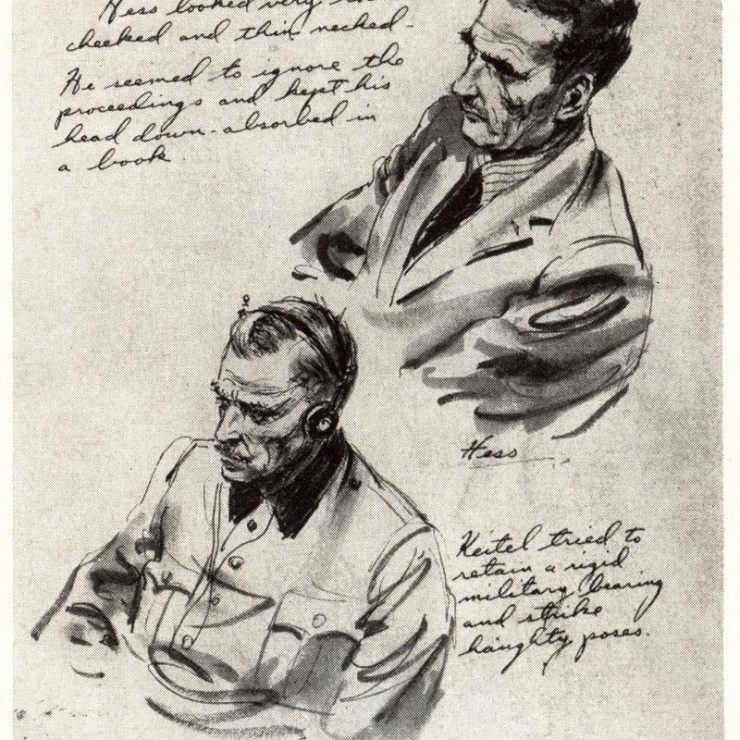 Hess looked very
cheeked and thin necked.
He seemed to ignore the
proceedings and kept his
head down - absorbed in
a book
Hess
Keitel tried to
retain a rigid
military bearing
and strike
haughty poses.